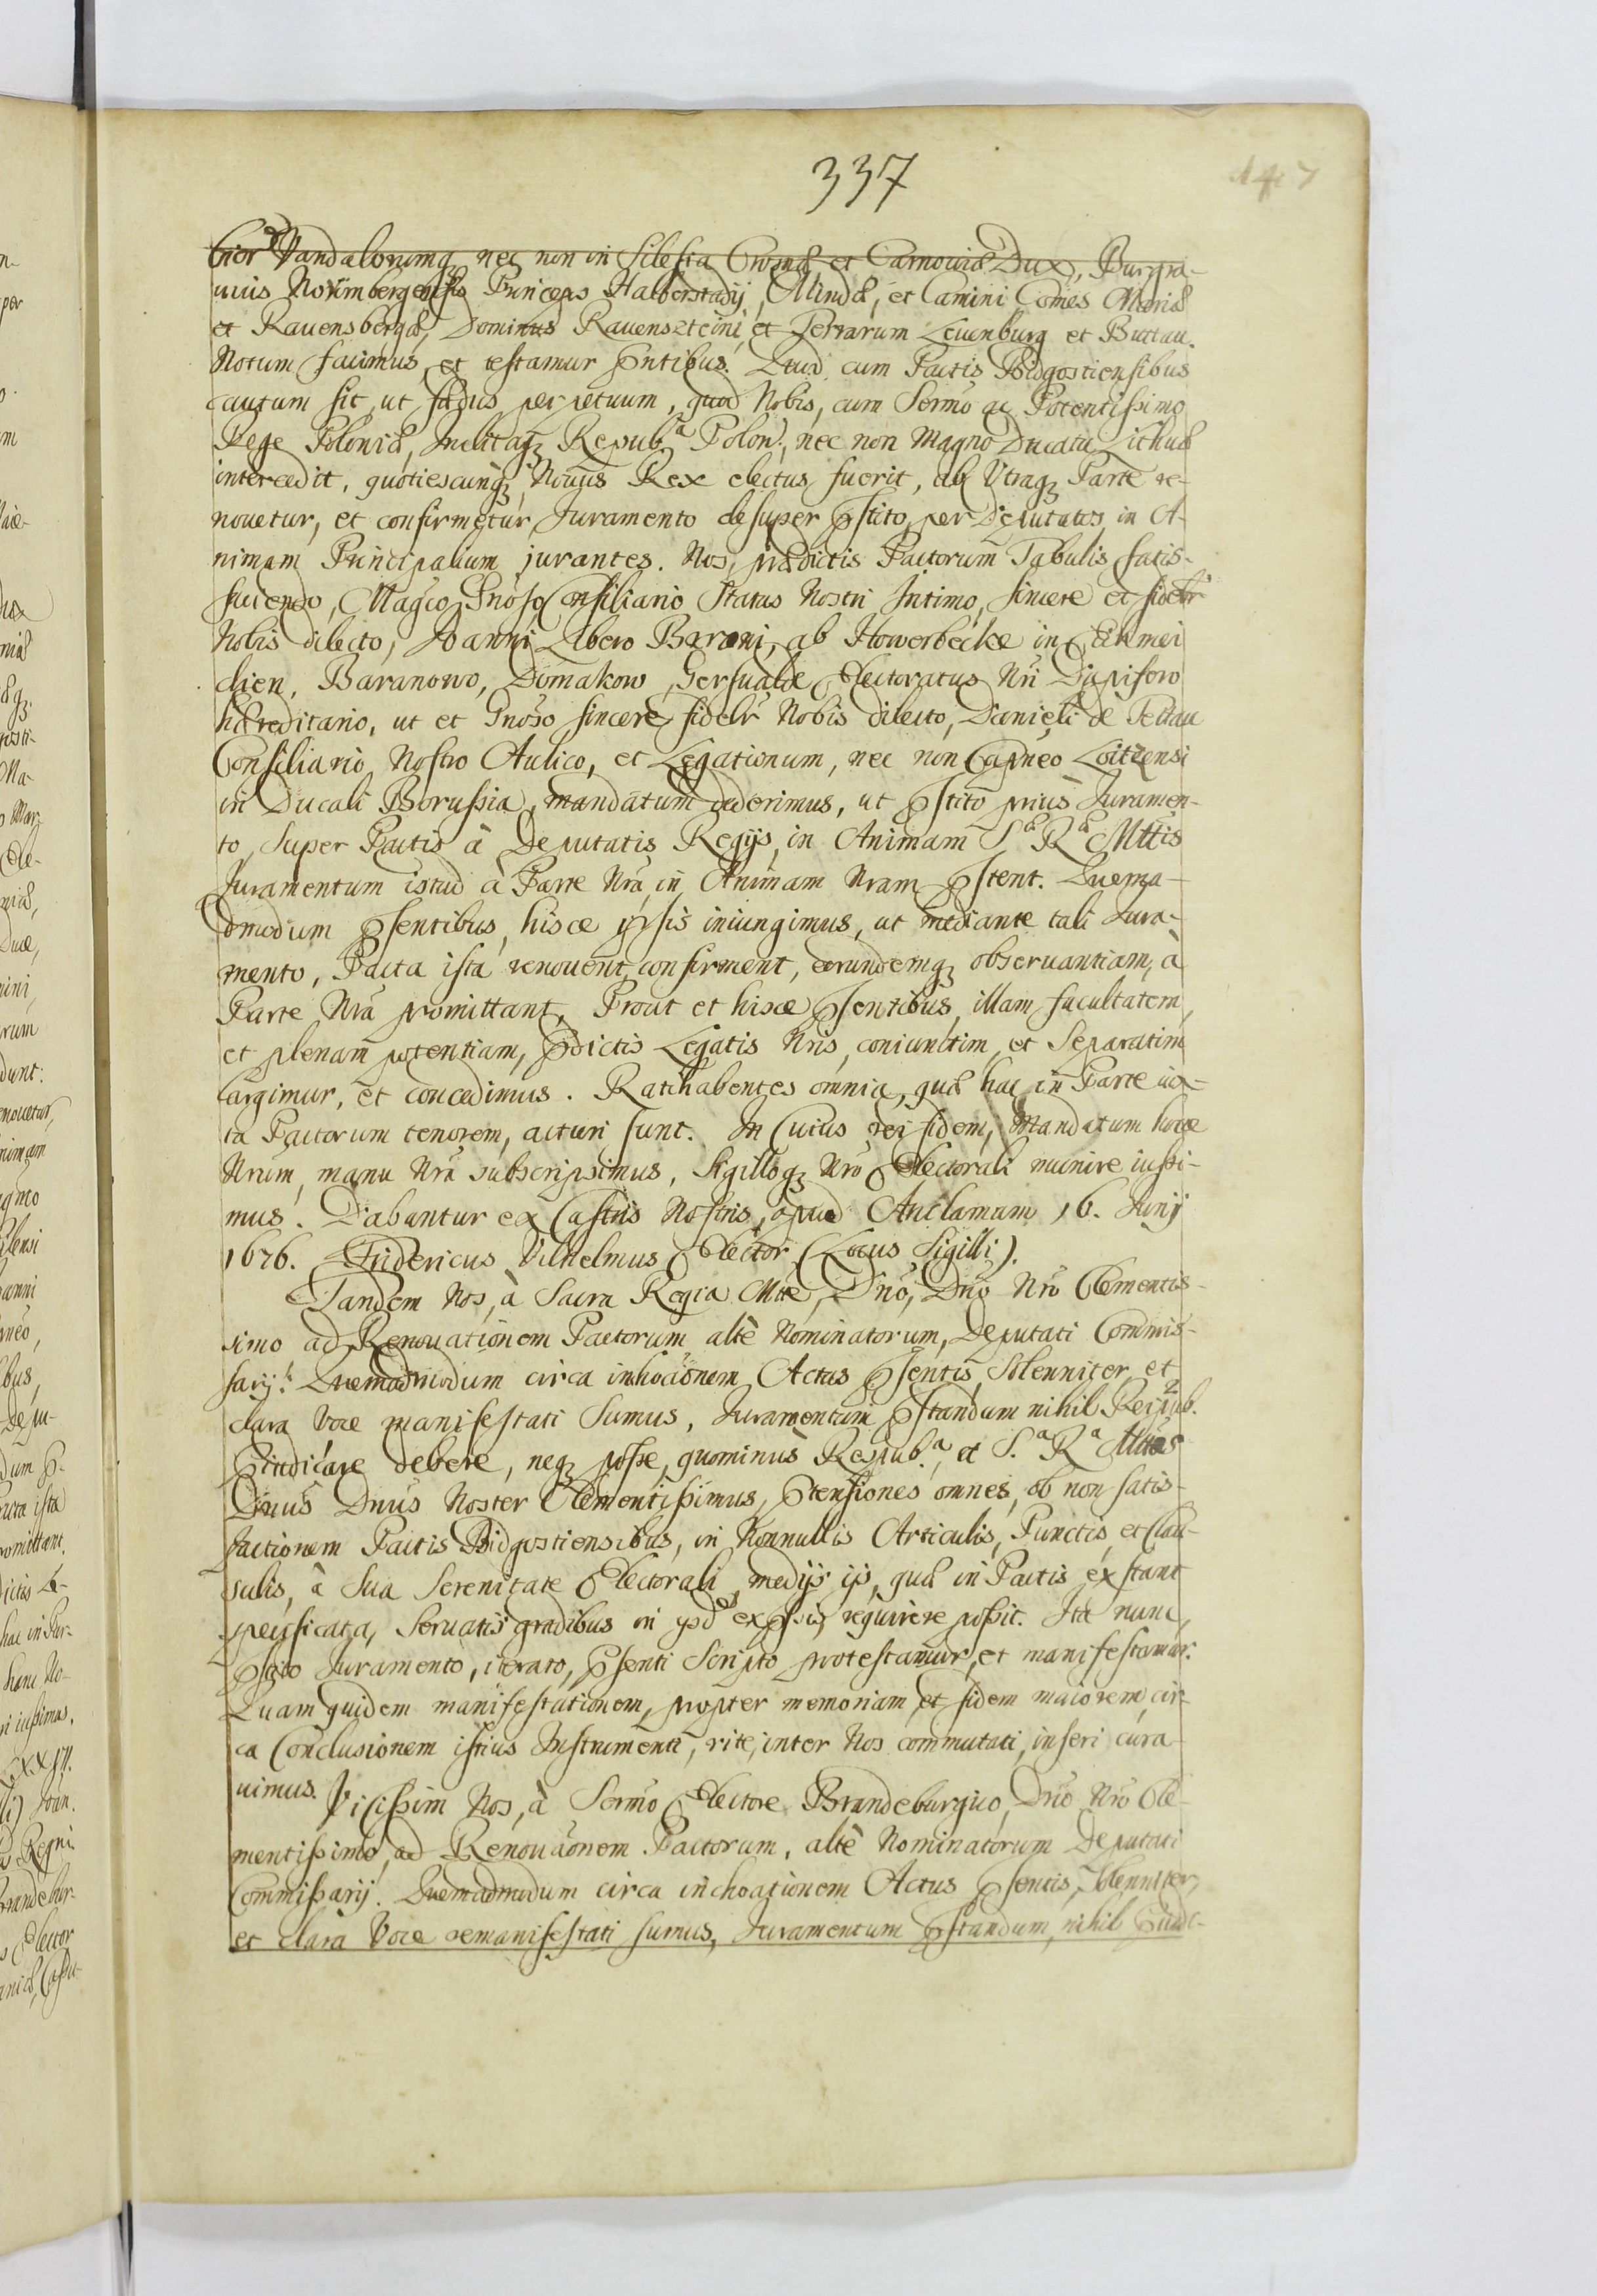 337
447
Vandalorumq; nec non in Silesia Crosnæ et Carnoviæ Dux, Burgra-
uius Norimbergensis Princeps Halberstadij, Mindæ, et Camini Comes Marciæ
et Rauensbergæ, Dominus Rauenszteini, et Terrarum Leuenburg et Buttau.
Notum facimus, et testamur pntibus. Quod cum Pactis Bidgostiensibus
cautum sit, ut fædus perpetuum, quod Nobis, cum Sermo ac Potentissimo
Rege Poloniæ, Inclitaq; Repub.a Polon: nec non Magno Ducatu Lithuæ
intercedit, quotiescunq; Nouus Rex electus fuerit, ab Utraq; Parte re-
nouetur, et confirmetur, Juramento desuper pstito, per Deputatos in A-
nimam Principalium jurantes. Nos, prædictis Pactorum Tabulis satis-
faciendo, Magco Gnoso Consiliario Status Nostri Intimo, sincere et fidelr
Nobis dilecto, Joanni Libero Baroni, ab Howerbecke in Eikmei
dien, Baranowo, Domakow, Gersualde Electoratus Nri Dapifero
hæreditario, ut et Gnoso sincere fidelr Nobis dilecto, Danieli de Tettau
Consiliario Nostro Aulico, et Legationum, nec non Capneo Loitzensi
in Ducali Borussia, mandatum dederimus, ut pstito prius Juramen-
to, super Pactis à Deputatis Regijs, in Animam S.æ R.æ Mttis
Juramentum istud à Parte Nra, in Animam Nram pstent. Quema-
dmodum psentibus, hisce ipsis iniungimus, ut mediante tali Jura-
mento, Pacta ista renouent, confirment, eorundemq; obseruantiam, à
Parte Nra promittant, Prout et hisce psentibus, illam facultatem,
et plenam potentiam, pdictis Legatis Nris, coniunctim, et Separatim
largimur, et concedimus. Ratihabentes omnia, quæ hac in Parte iux-
ta Pactorum tenorem, acturi sunt. In Cuius rei fidem, Mandatum hoce
Nrum, manu Nra subscripsimus, Sigilloq; Nro Electorali munire iussi-
mus. Dabantur ex Castris Nostris, apud Anclamum 16. Junij
1676. Fridericus Vilhelmus Elector (Locus Sigilli).
Tandem Nos, à Sacra Regia Mtte, Dno, Dno Nro Clementis-
simo ad Renouationem Pactorum altè Nominatorum, Deputati Commis-
sarij. Quemadmodum circa inchoaonem Actus psentis, Solenniter, et
clara Voce manifestati Sumus, Juramentum pstandum nihil Reipub.
piudicare debere, neq; posse, quominus Repub.a, et S.a R.a Mttas
Dnus Dnus Noster Clementissimus, ptensiones omnes, ob non satis-
factionem Pactis Bidgostiensibus, in Nonnullis Articulis, Punctis, et Clau-
sulis, à Sua Serenitate Electorali, medijs ijs, quæ in Pactis exstant
specificata, Seruatis gradibus in expssis, requirere possit. Ita nunc,
pstito Juramento, iterato, psenti Scripto protestamur, et manifestamur.
Quam quidem manifestationem, propter memoriam, et fidem maiorem, cir-
ca Conclusionem istius Instrumenti, rite, inter Nos commutati, inseri cura-
uimus. Vicissim Nos, à Sermo Electore Brandeburgico, Dno Nro Cle-
mentissimo, ad Renouaonem Pactorum, altè Nominatorum Deputati
Commissarij. Quemadmodum circa inchoationem Actus psentis, Solenniter,
et clarà Voce remanifestati sumus, Juramentum pstandum, nihil piudi-